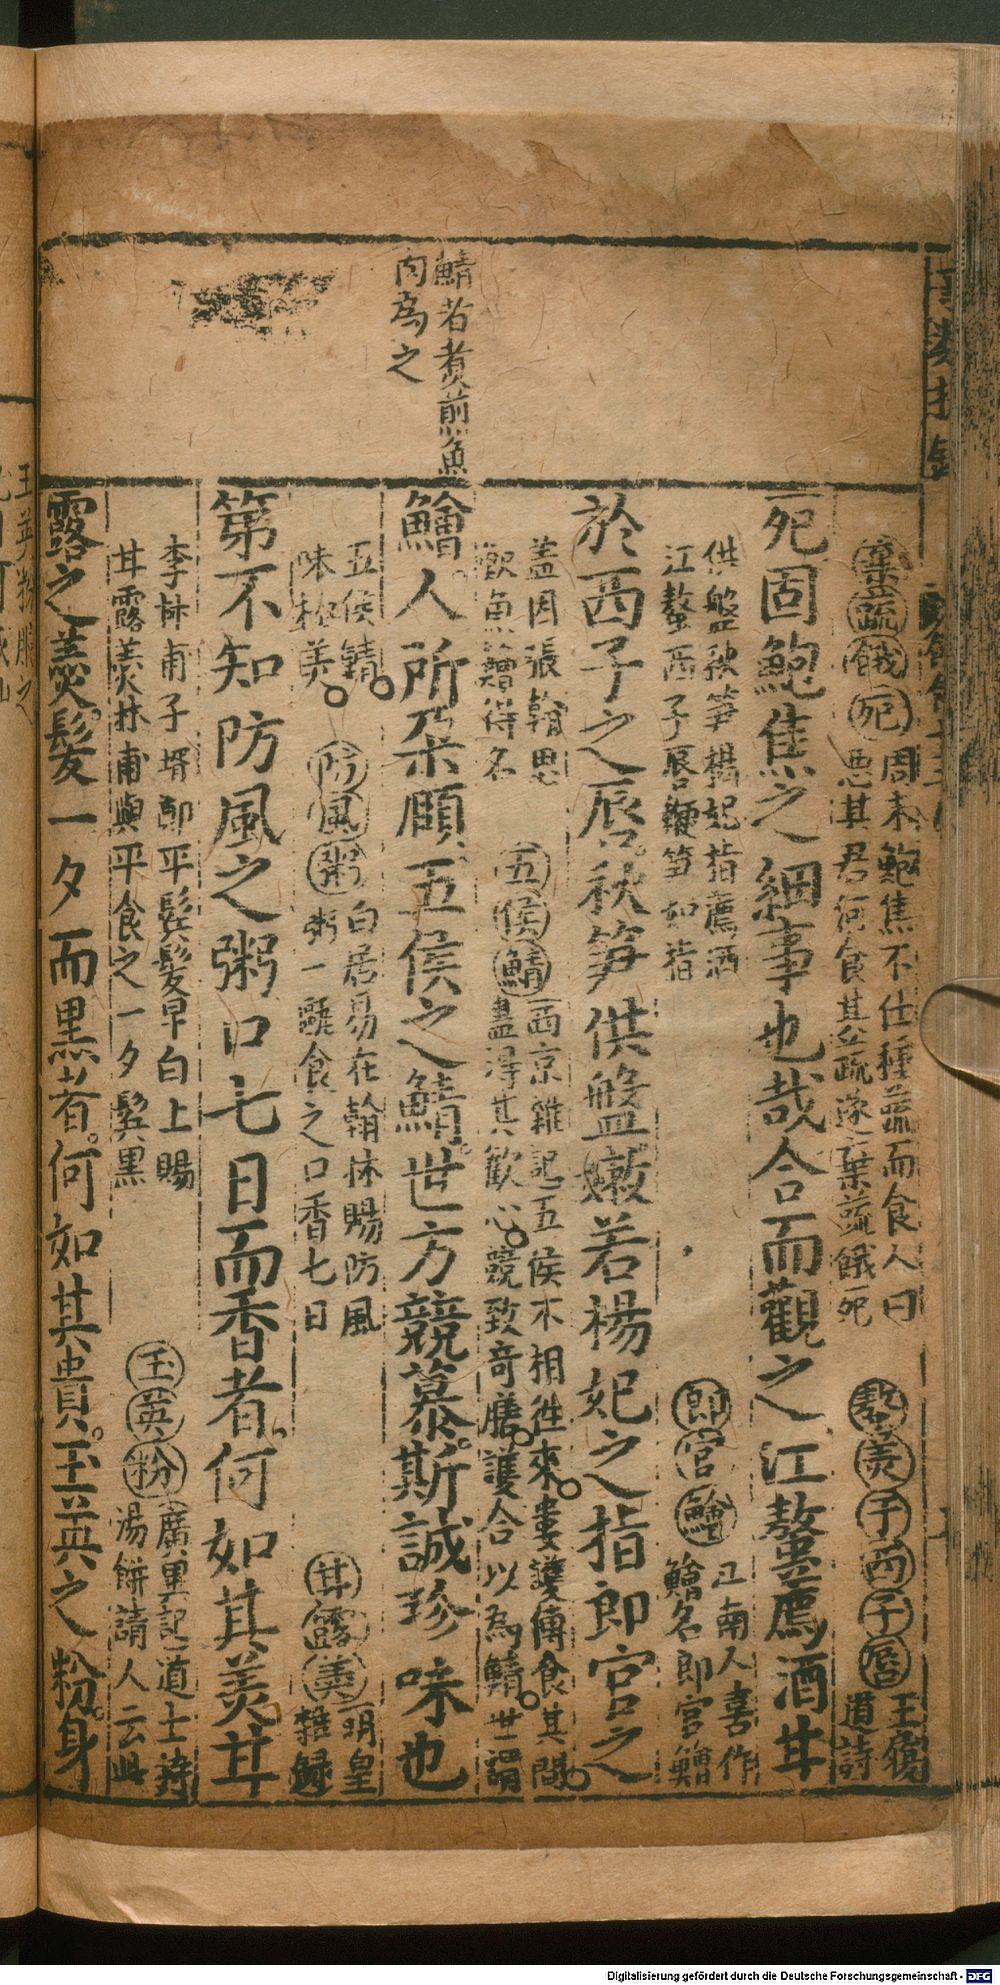 鯖者煑煎魚
肉爲之
棄蔬餓死 周末鮑焦不仕種蔬而食人曰
惡其君何食其蔬遂棄蔬餓死
于西子唇 王
道詩
死固鮑焦之細事也哉合而觀之江螯薦酒甘
供盤秋笋楊妃指薦酒
江螯西子唇鞭笋如指
郎官鱠 江南人喜作
鱠名郎官鱠
於西子之唇秋笋供盤嫩若楊妃之指郎官之
盖因張翰思
魚鱠得名
五侯鯖 西京雜記五侯不相徃來婁護傳食其間
盡得其歡心競致奇膳護合以為鯖世謂
鱠人所朶頤五侯之鯖世方競慕斯誠珍味也
五侯鯖
味極美
防風粥 白居易在翰林賜防風
粥一甌食之口香七日
甘露羹 明皇
雜録
第不知防風之粥口七日而香者何如其羙甘
李林甫子壻鄭平鬂髮早白上賜
甘露羹林甫與平食之一夕鬂黒
玉英粉 廣異記道士詩
湯餅請人云此
露之羹髮一夕而黒者何如其貴玉英之粉身
Digitalisierung gefördert durch die Deutsche Forschungsgemeinschaft - DFG